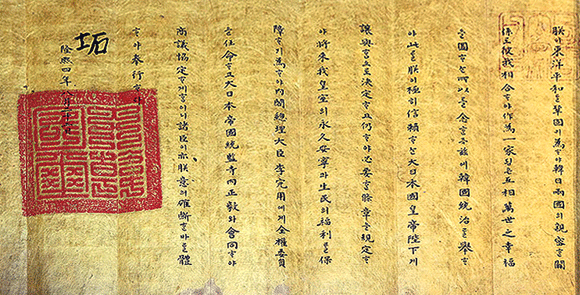 朕이東洋平和를鞏固히ᄒᆞ기爲ᄒᆞ야韓日兩國의親密ᄒᆞᆫ關
係로彼我相合ᄒᆞ야作爲一家ᄒᆞᆷ은互相萬世之幸福
을圖ᄒᆞᄂᆞᆫ所以를念ᄒᆞᆫ즉玆에韓國統治를擧ᄒᆞ
야此를朕이極히信賴ᄒᆞᄂᆞᆫ大日本國皇帝陛下게
讓與ᄒᆞᆷ으로決定ᄒᆞ고仍ᄒᆞ야必要ᄒᆞᆫ條章을規定ᄒᆞ
야將來我皇室의永久安寧과生民의福利를保
障ᄒᆞ기爲ᄒᆞ야內閣總理大臣李完用에게全權委員
을任命ᄒᆞ고大日本帝國統監寺內正毅와會同ᄒᆞ야
商議協定케ᄒᆞ노니諸臣이亦朕意의確斷ᄒᆞᆫ바를體
ᄒᆞ야奉行ᄒᆞ라
隆熙四年
坧